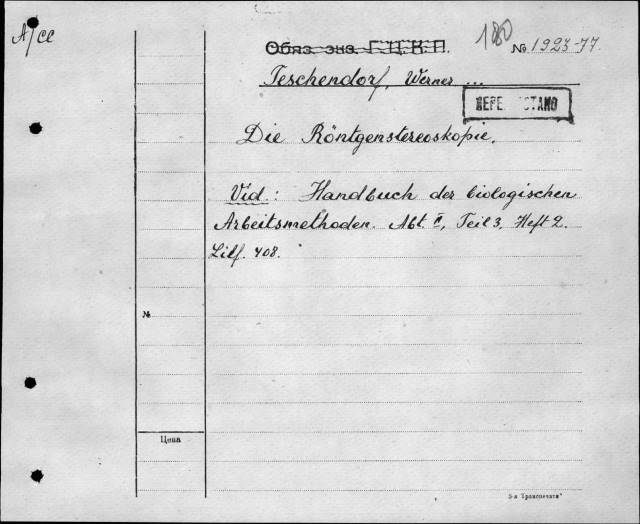 A/cc
180
Обяз. экз. Г.Ц.К.П. № 1923-77.
Teschendorf, Werner ...
Die Röntgenstereoskopie.
Vid.: Handbuch der biologischen
Arbeitsmethoden. Abt. II, Teil 3, Heft 2.
Lilf. 408.
№
Цена
5-я Транспечати